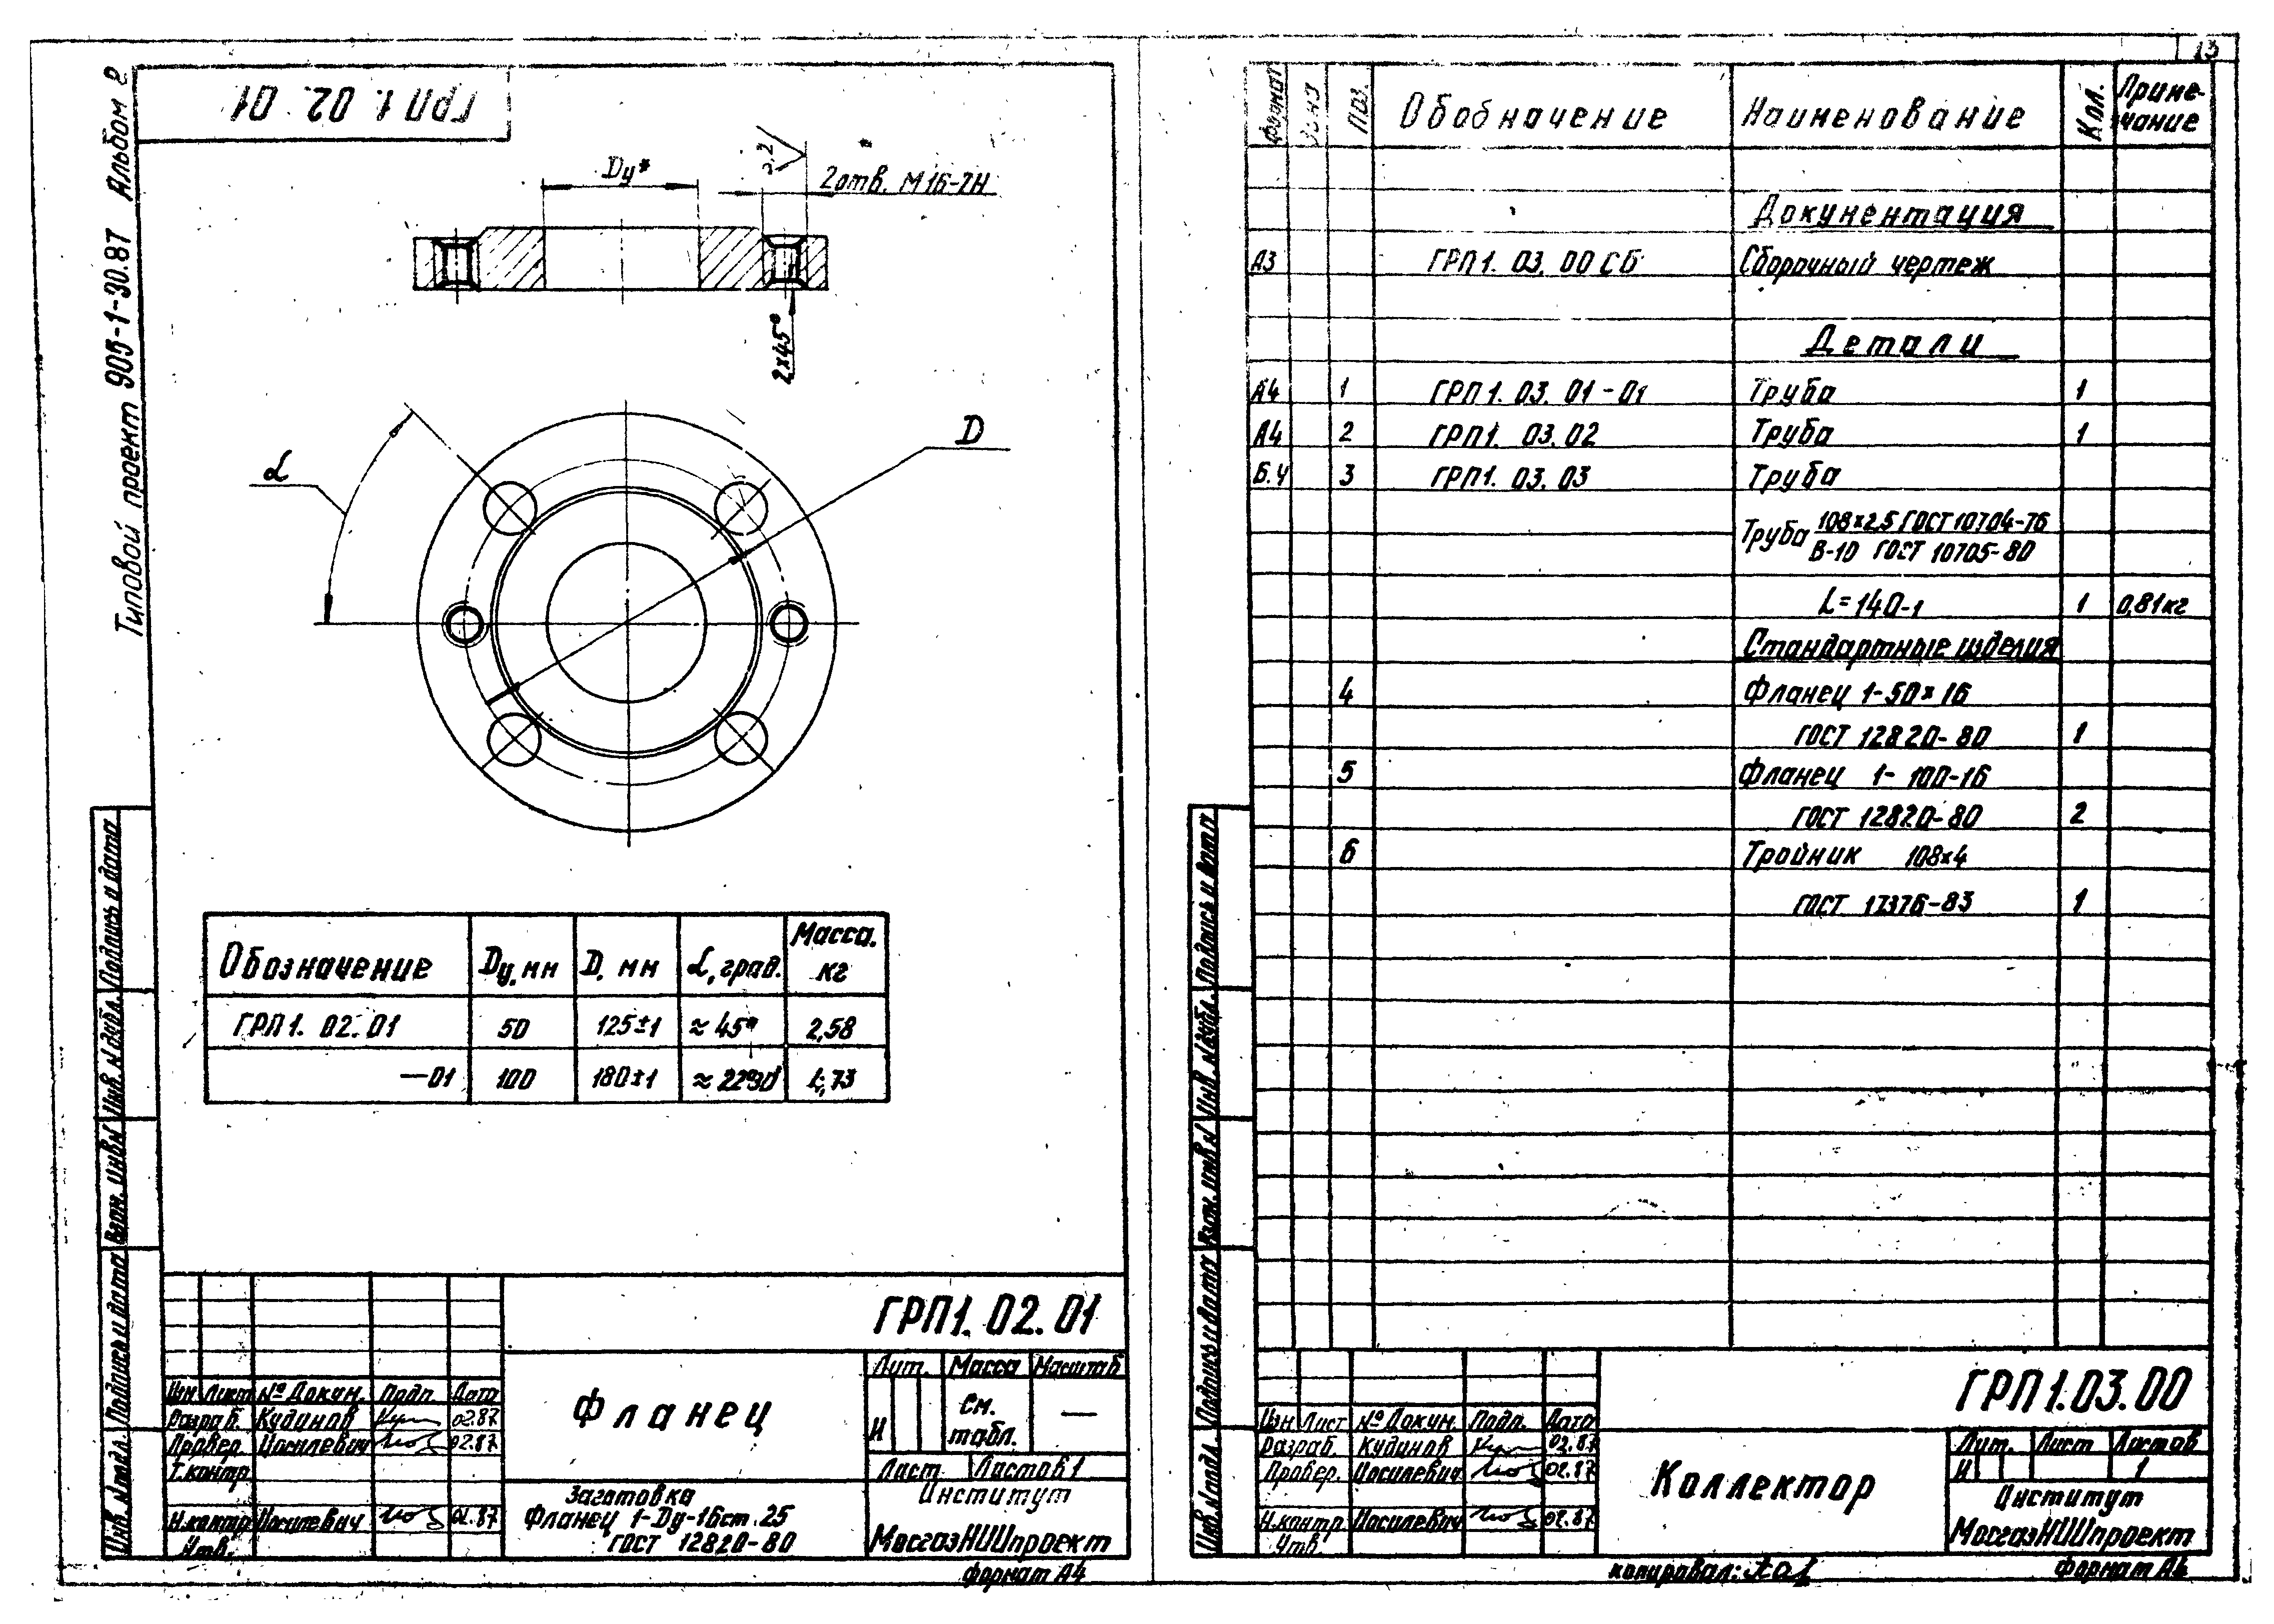 13
Типовой проект 905-1-30.87 Альбом 2
ГРП 1. 02. 01
Dу*
3,2
2отв. М16-7Н
2х45°
D
α
Обозначение Dу, мм D, мм α, град. Масса. кг
ГРП1. 02. 01 50 125±1 ≈ 45° 2,58
—01 100 180±1 ,73
ГРП1. 02. 01
Фланец
Лит. Масса Масштаб
И см. табл. —
Лист Листов 1
Изм Лист № Докум. Подп. Дата
Разраб. Кудинов 02.87
Провер. Иосилевич 02.87
Т.контр
Н.контр Иосилевич 02.87
Утв.
Заготовка
Фланец 1-Dу-16ст.25
ГОСТ 12820-80
Институт
МосгазНИИпроект
формат А4
Подпись и дата
Инв. № дубл.
Взам. инв №
Подпись и дата
Инв. № подл.
Формат Зона Поз. Обозначение Наименование Кол. Приме-
чание
Документация
А3 ГРП1. 03. 00 СБ Сборочный чертеж
Детали
А4 1 ГРП1. 03. 01-01 Труба 1
А4 2 ГРП1. 03. 02 Труба 1
Б.Ч 3 ГРП1. 03. 03 Труба
Труба 108×2,5 ГОСТ 10704-76
В-10 ГОСТ 10705-80
L=140-1 1 0,81кг
Стандартные изделия
4 Фланец 1-50×16
ГОСТ 12820-80 1
5 Фланец 1-100-16
ГОСТ 12820-80 2
6 Тройник 108×4
ГОСТ 17376-83 1
Подпись и дата
Инв. № дубл.
Взам. инв. №
Подпись и дата
Инв. № подл.
ГРП1.03.00
Изм Лист № Докум. Подп. Дата
Разраб. Кудинов 02.87
Провер. Иосилевич 02.87
Н.контр Иосилевич 02.87
Утв.
Коллектор
Лит. Лист Листов
И 1
Институт
МосгазНИИпроект
копировал:
формат А4